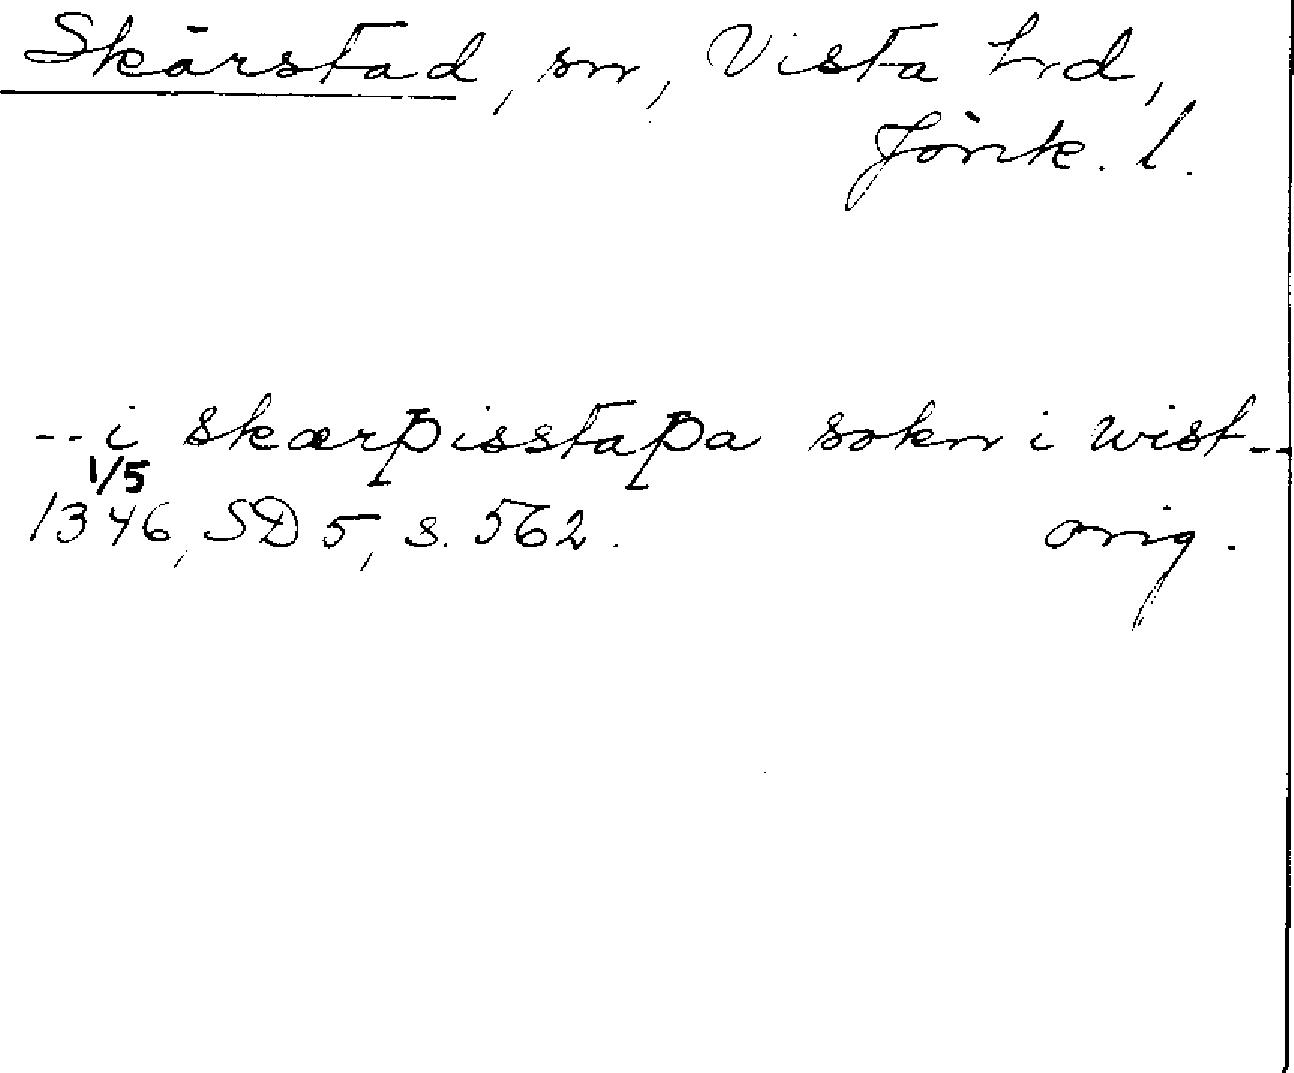 Skärstad, sn, Vista hd,
Jönk. l.
-- i skærþisstaþa sokn i wist --
1/5
1346, SD 5, s. 562. orig.